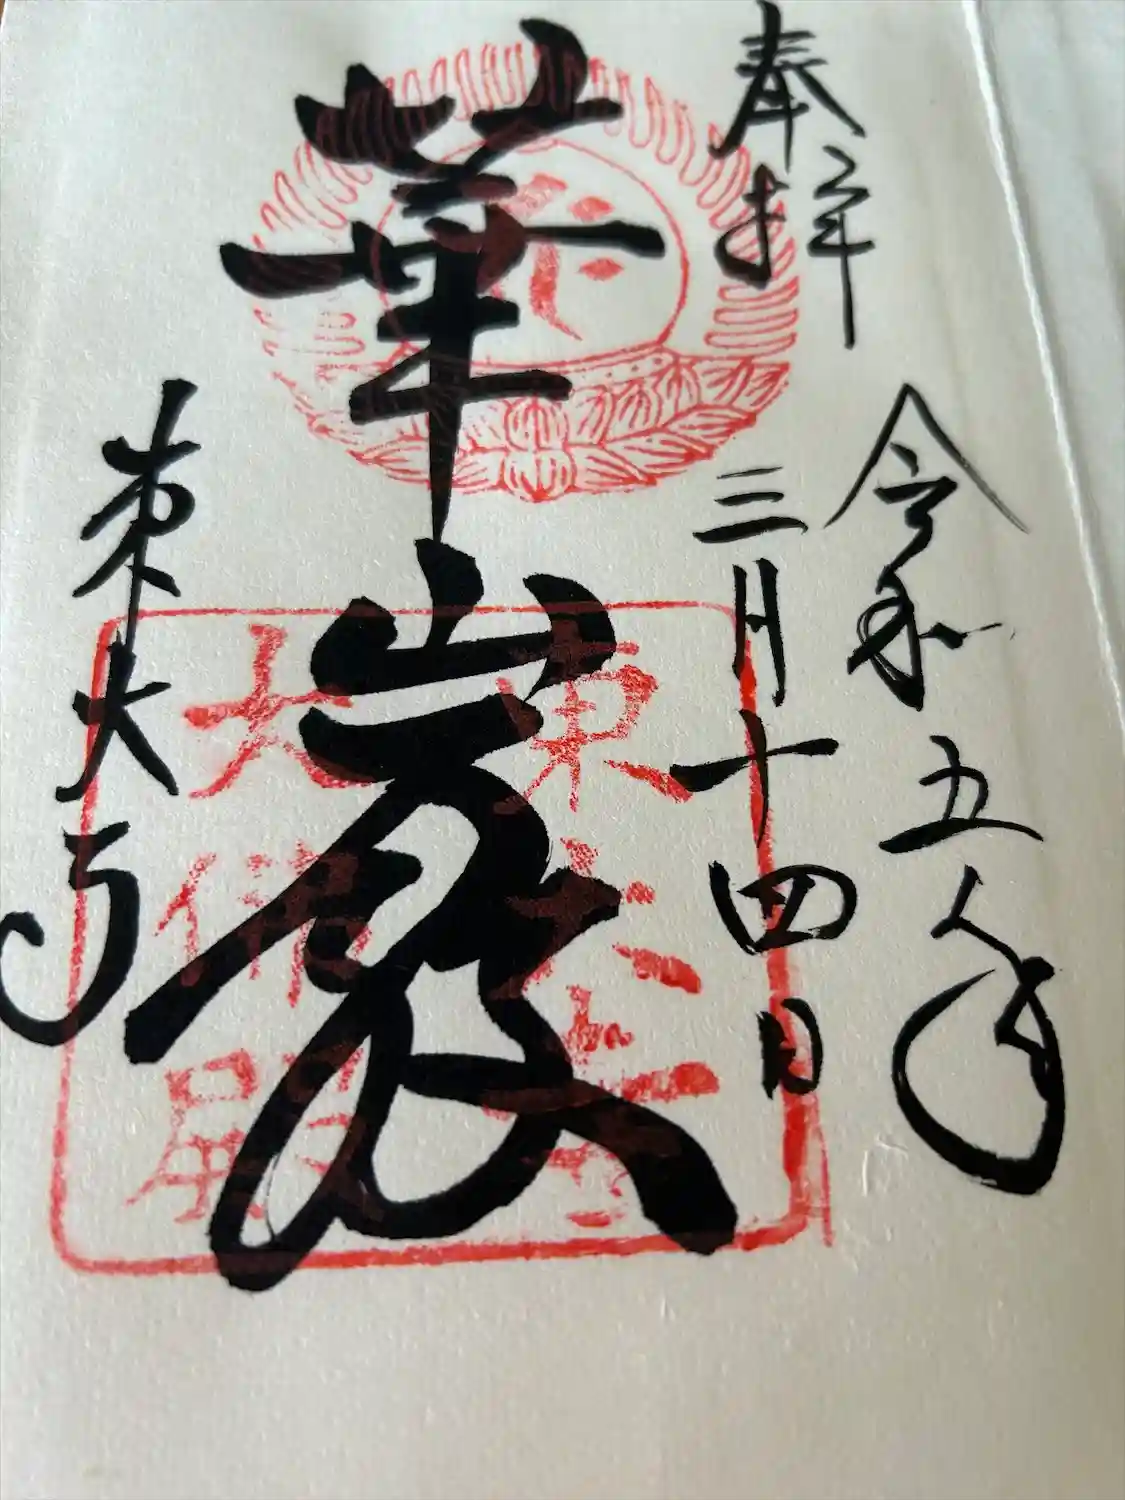 奉拝
令和五年
三月十四日
華厳
東大寺